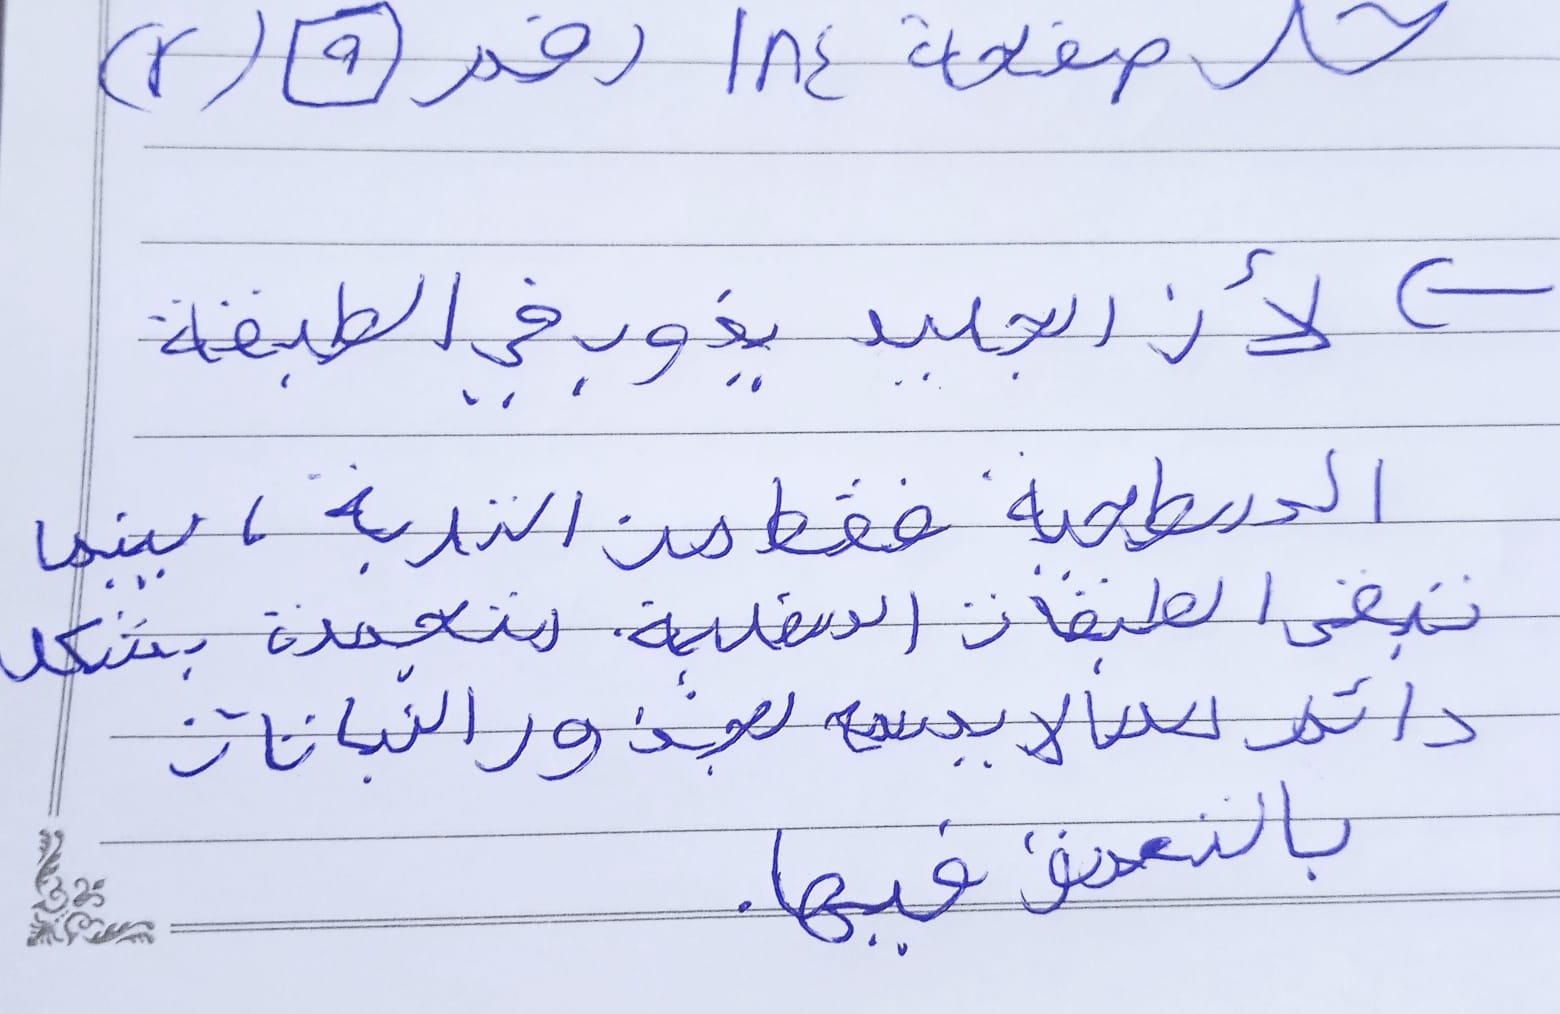 حل صفحة ١٨٤ رقم ٩ (٢)
← لأن الجليد يغوب في الطبقة
السطحية فقط من التربة ، بينما
تبقى الطبقات السفلية متجمدة بشكل
دائم مما لا يسمح لجذور النباتات
بالتعمق فيها.